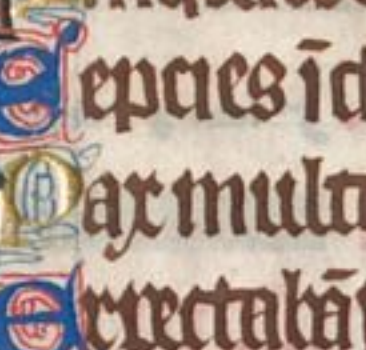 Sepcies ī d
Pax multa
Expectabā